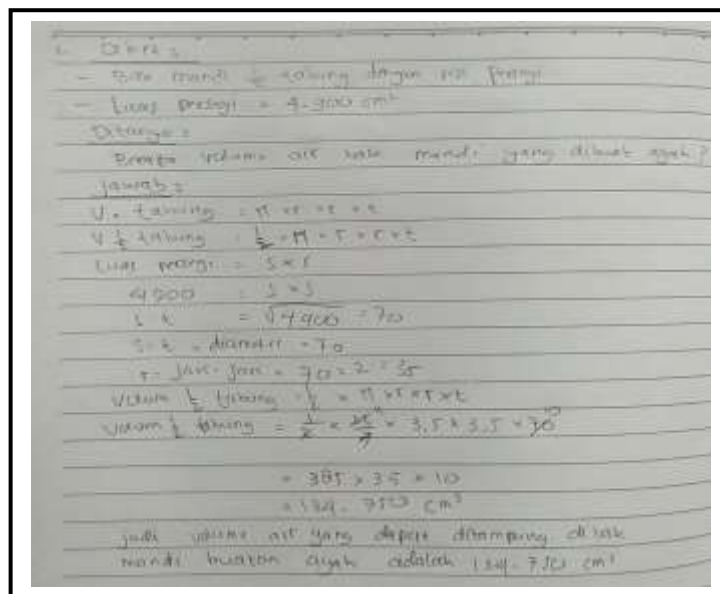 - Bak mandi ½ tabung dengan sisi persegi
- Luas persegi = 4.900 cm²
Ditanya :
Berapa volume air bak mandi yang dibuat ayah ?
Jawab :
V. tabung = π × r × r × t
V ½ tabung = ½ × π × r × r × t
Luas persegi = s × s
4900 = s × s
= √4900 = 70
= diameter = 70
r = jari-jari = 70 : 2 = 35
Volum ½ tabung = ½ × π × r × r × t
Volum ½ tabung = ½ × 22/7 × 3,5 × 3,5 × 70
= 385 × 35 × 10
= 134.750 cm³
Jadi volume air yang dapat ditampung di bak
mandi buatan ayah adalah 134.750 cm³